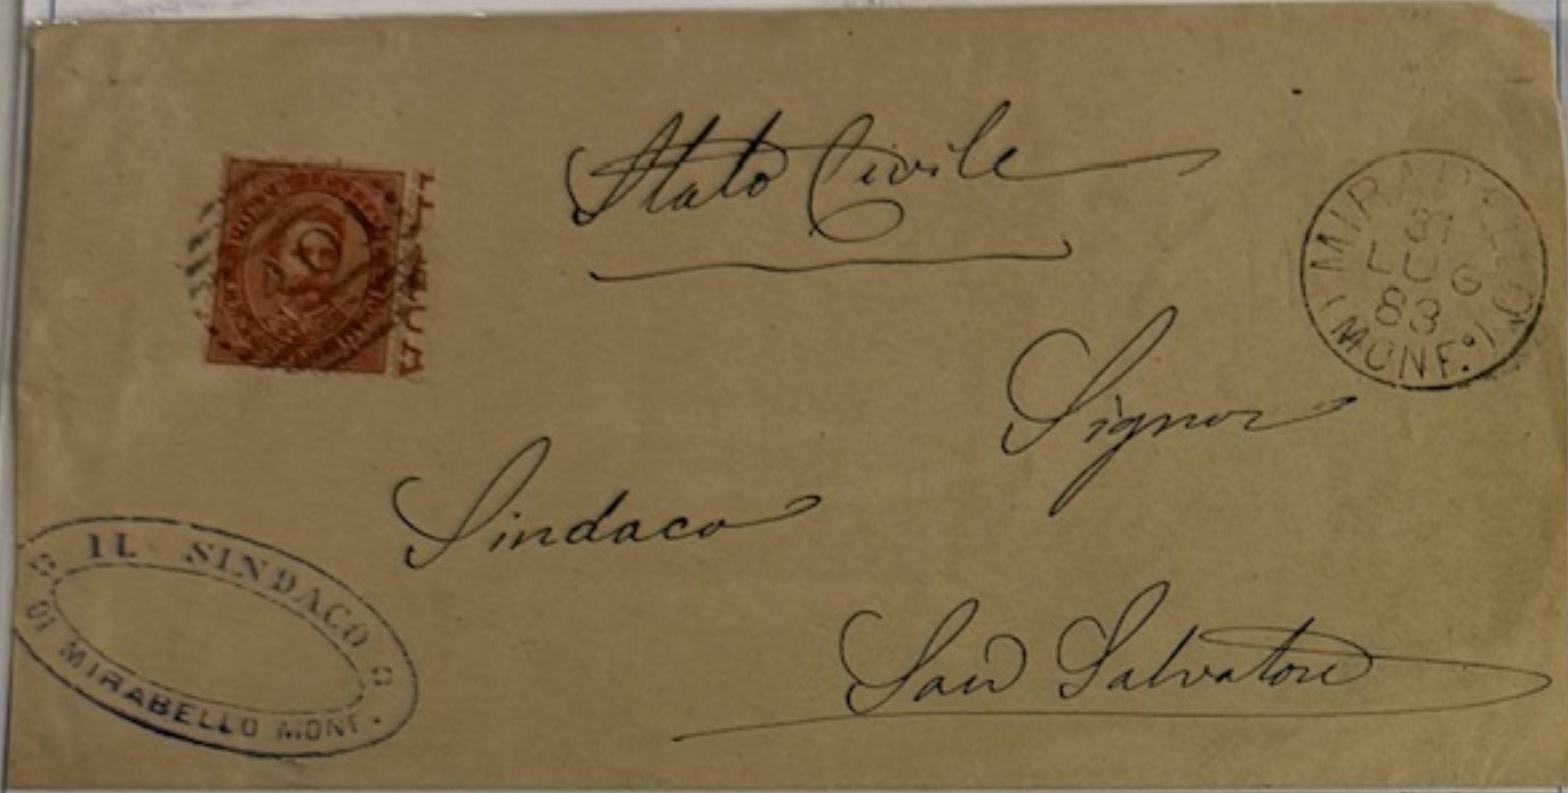 Stato Civile
MIRABELLO
31
LUG
83
(MONF.º)
Signor
Sindaco
San Salvatore
IL SINDACO
DI MIRABELLO MONF.